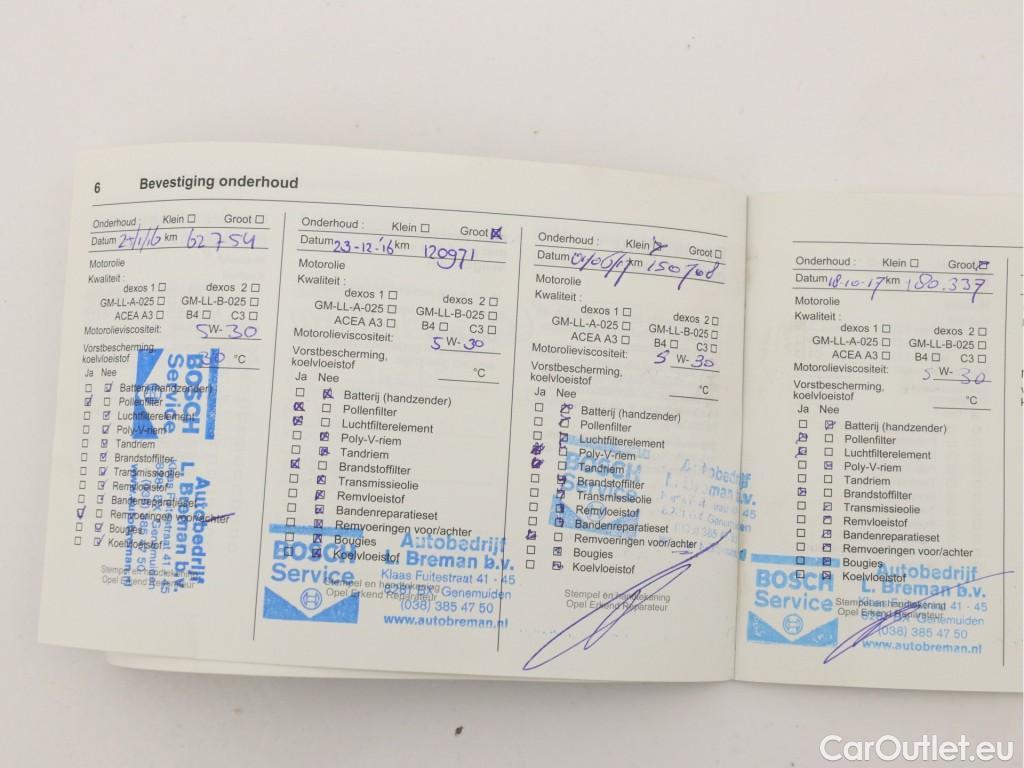 6 Bevestiging onderhoud
Onderhoud : Klein ☐ Groot ☐
Datum km 62754
Motorolie
Kwaliteit :
dexos 1 ☐ dexos 2 ☐
GM-LL-A-025 ☐ GM-LL-B-025 ☐
ACEA A3 ☐ B4 ☐ C3 ☐
Motorolieviscositeit: 5W-30
Vorstbescherming,
koelvloeistof 30 °C
Ja Nee
Batterij (handzender)
Pollenfilter
Luchtfilterelement
Poly-V-riem
Tandriem
Brandstoffilter
Transmissieolie
Remvloeistof
Bandenreparatieset
Remvoeringen voor/achter
Bougies
Koelvloeistof
Stempel en handtekening
Opel Erkend Reparateur
BOSCH
Service
Autobedrijf
L. Breman b.v.
Onderhoud : Klein ☐ Groot ☒
Datum 23-12-'16 km 120971
Motorolie
Kwaliteit :
dexos 1 ☐ dexos 2 ☐
GM-LL-A-025 ☐ GM-LL-B-025 ☐
ACEA A3 ☐ B4 ☐ C3 ☐
Motorolieviscositeit: 5 W-30
Vorstbescherming,
koelvloeistof °C
Ja Nee
Batterij (handzender)
Pollenfilter
Luchtfilterelement
Poly-V-riem
Tandriem
Brandstoffilter
Transmissieolie
Remvloeistof
Bandenreparatieset
Remvoeringen voor/achter
Bougies
Koelvloeistof
Stempel en handtekening
Opel Erkend Reparateur
BOSCH
Service
Autobedrijf
L. Breman b.v.
Klaas Fuitestraat 41 - 45
8281 BX Genemuiden
(038) 385 47 50
www.autobreman.nl
Onderhoud : Klein ☒ Groot ☐
Datum km 150768
Motorolie
Kwaliteit :
dexos 1 ☐ dexos 2 ☐
GM-LL-A-025 ☐ GM-LL-B-025 ☐
ACEA A3 ☐ B4 ☐ C3 ☐
Motorolieviscositeit: 5 W-30
Vorstbescherming,
koelvloeistof °C
Ja Nee
Batterij (handzender)
Pollenfilter
Luchtfilterelement
Poly-V-riem
Tandriem
Brandstoffilter
Transmissieolie
Remvloeistof
Bandenreparatieset
Remvoeringen voor/achter
Bougies
Koelvloeistof
Stempel en handtekening
Opel Erkend Reparateur
BOSCH
Service
Autobedrijf
Onderhoud : Klein ☐ Groot ☒
Datum 18-10-17 km 180.337
Motorolie
Kwaliteit :
dexos 1 ☐ dexos 2 ☐
GM-LL-A-025 ☐ GM-LL-B-025 ☐
ACEA A3 ☐ B4 ☐ C3 ☐
Motorolieviscositeit: 5 W-30
Vorstbescherming,
koelvloeistof °C
Ja Nee
Batterij (handzender)
Pollenfilter
Luchtfilterelement
Poly-V-riem
Tandriem
Brandstoffilter
Transmissieolie
Remvloeistof
Bandenreparatieset
Remvoeringen voor/achter
Bougies
Koelvloeistof
Stempel en handtekening
Opel Erkend Reparateur
BOSCH
Service
Autobedrijf
L. Breman b.v.
Klaas Fuitestraat 41 - 45
8281 BX Genemuiden
(038) 385 47 50
www.autobreman.nl
CarOutlet.eu